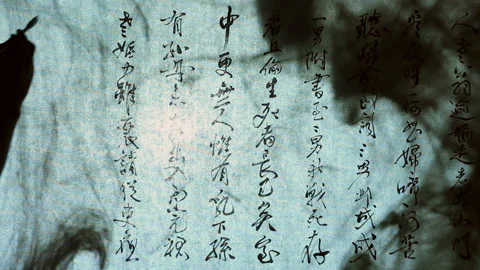 人老翁逾墻走老婦出門
吏呼一何怒婦啼一何苦
聽婦前致詞三男鄴城戍
一男附書至二男新戰死存
者且偷生死者長已矣室
中更無人惟有乳下孫
有孫母未去出入無完裙
老嫗力雖衰請從吏夜